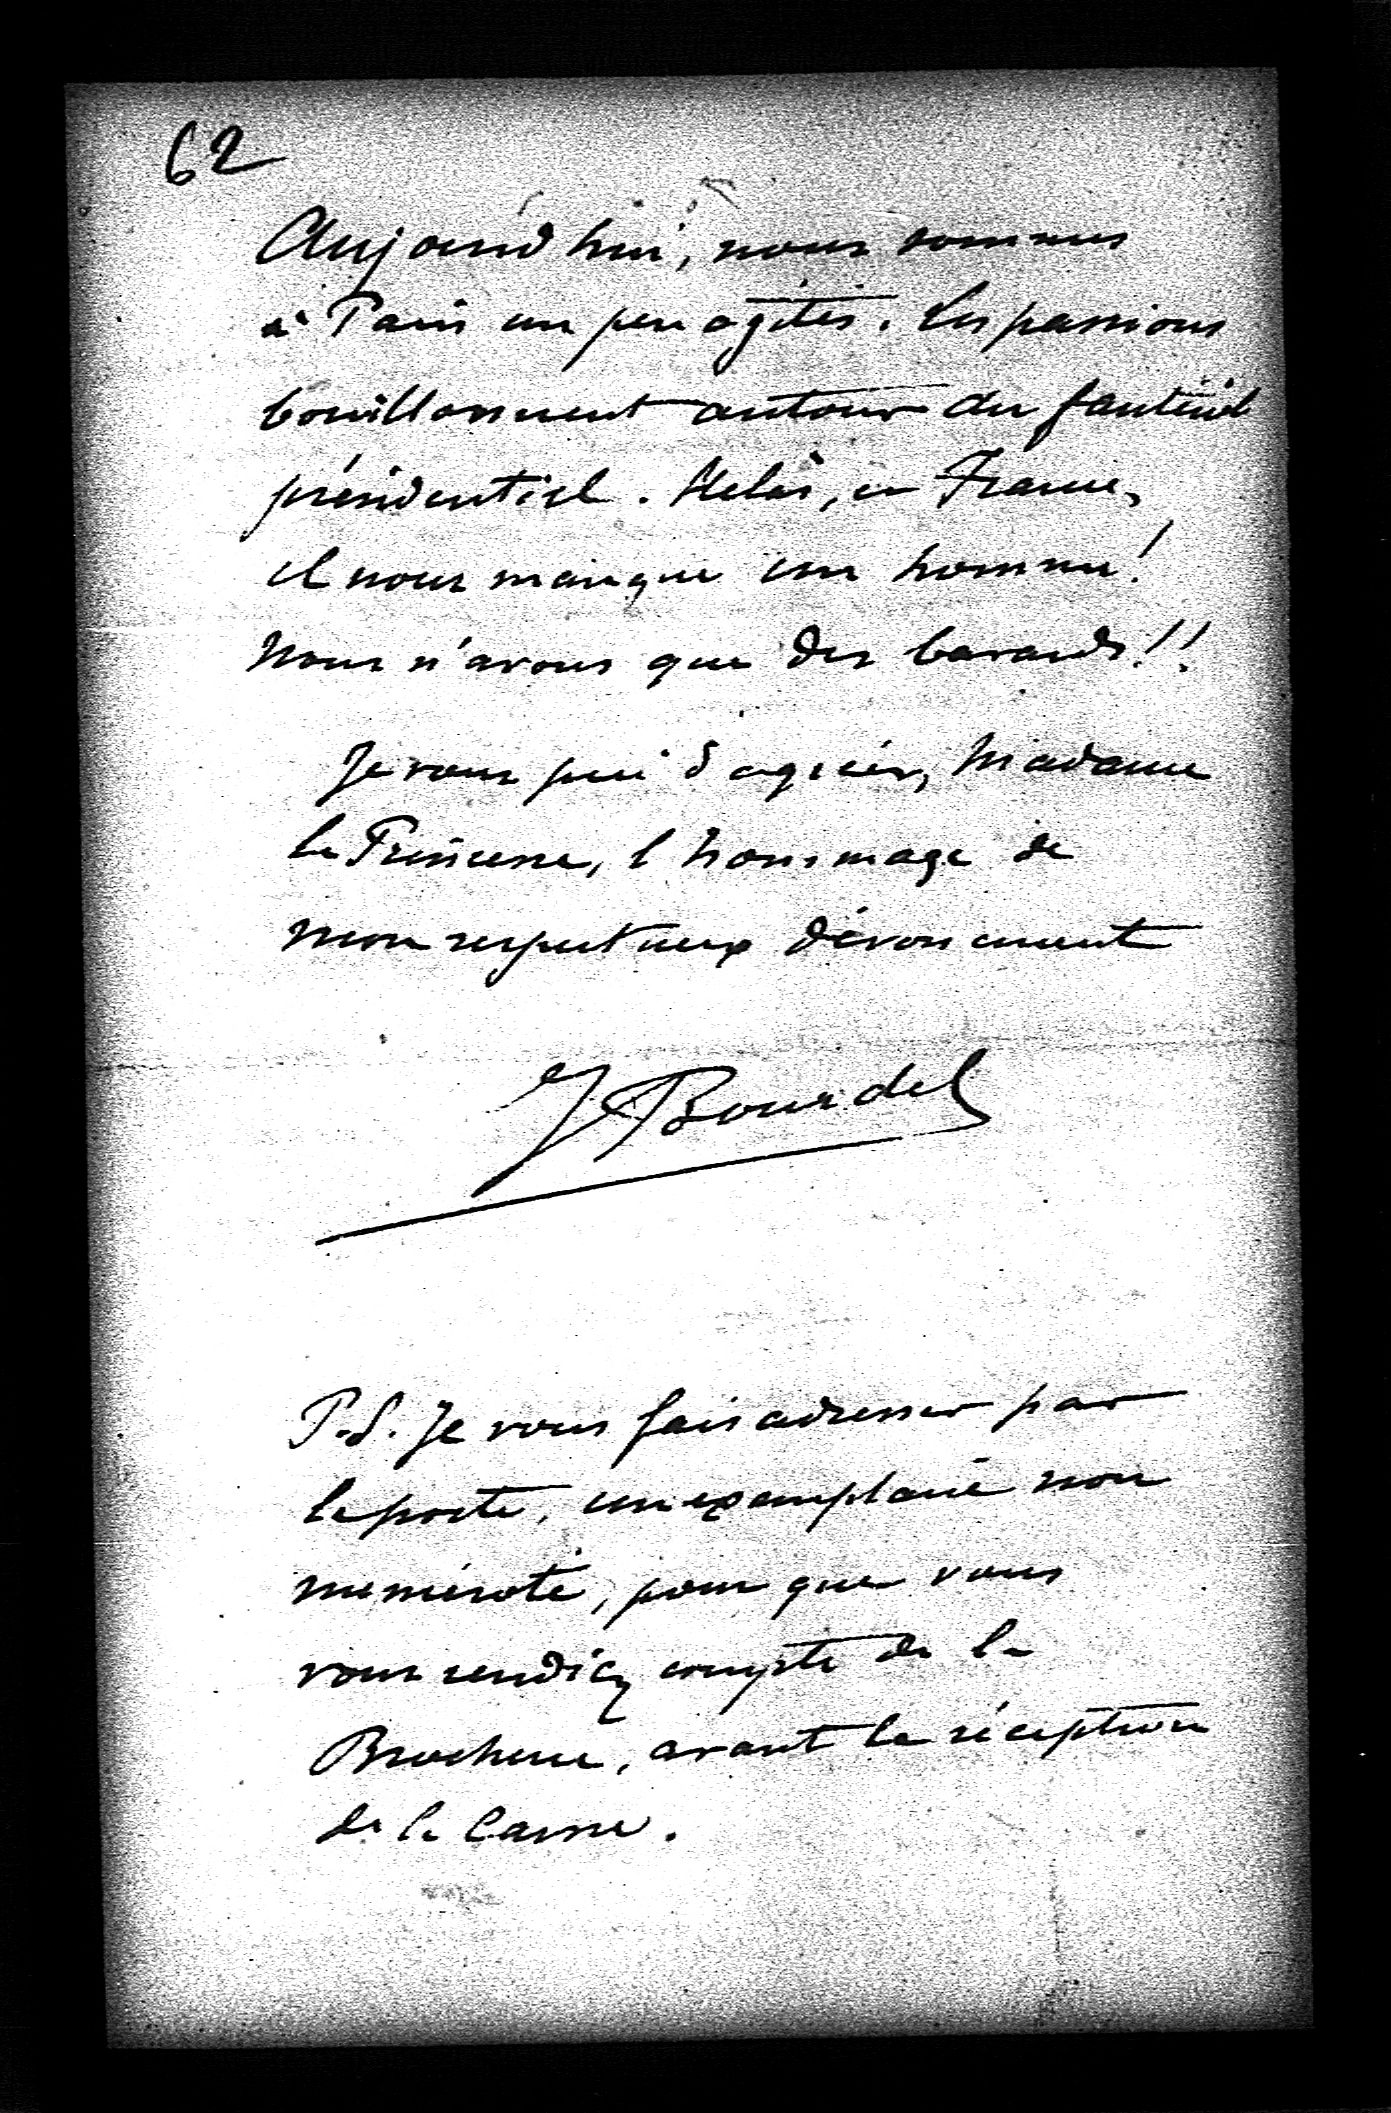 62
Aujourd'hui, nous sommes
à Paris un peu agités. Les passions
bouillonnent autour du fauteuil
présidentiel. Hélas, en France,
il nous manque un homme!
Nous n'avons que des bavards!!
Je vous prie d'agréer, Madame
la Princesse, l'hommage de
mon respectueux dévouement
J Bourdel
P.S. Je vous fais adresser par
la poste, un exemplaire non
numéroté, pour que vous
vous rendiez compte de la
Brochure, avant la réception
de la Caisse.